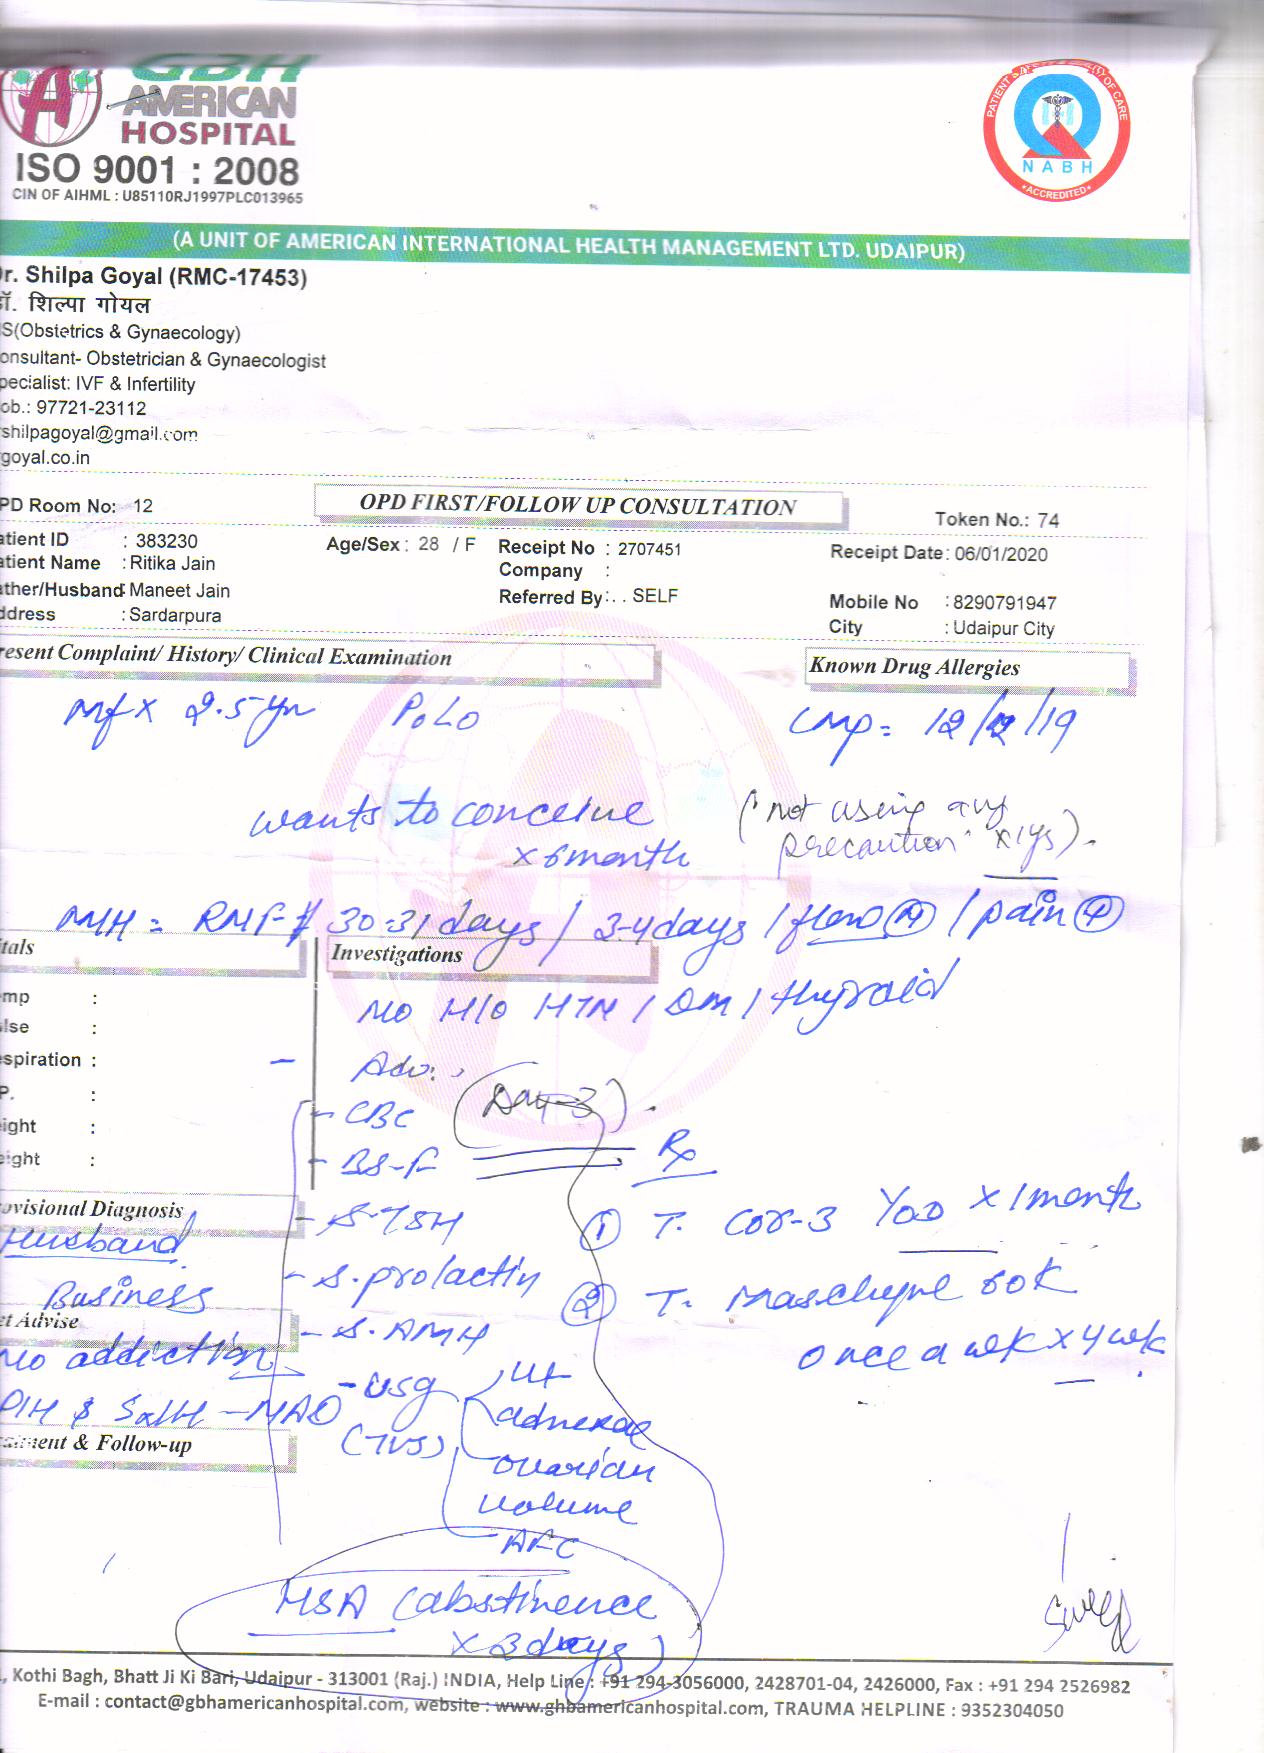 GBH
AMERICAN
HOSPITAL
ISO 9001 : 2008
CIN OF AIHML : U85110RJ1997PLC013965
NABH
ACCREDITED
(A UNIT OF AMERICAN INTERNATIONAL HEALTH MANAGEMENT LTD. UDAIPUR)
r. Shilpa Goyal (RMC-17453)
डॉ. शिल्पा गोयल
S(Obstetrics & Gynaecology)
onsultant- Obstetrician & Gynaecologist
pecialist: IVF & Infertility
ob.: 97721-23112
shilpagoyal@gmail.com
goyal.co.in
PD Room No: 12
OPD FIRST/FOLLOW UP CONSULTATION
Token No.: 74
atient ID : 383230 Age/Sex : 28 / F Receipt No : 2707451 Receipt Date: 06/01/2020
atient Name : Ritika Jain Company :
ather/Husband: Maneet Jain Referred By: . . SELF Mobile No : 8290791947
ddress : Sardarpura City : Udaipur City
resent Complaint/ History/ Clinical Examination
Known Drug Allergies
Mf x 2.5 yr P0L0 LMP = 12/12/19
wants to conceive (not using any
x 6 month precaution x 1 ys).
MH = RMF 30-31 days / 3-4 days / flow (N) / pain (+)
itals
Investigations
No H/O HTN / DM / thyroid
mp :
lse :
spiration : -
P. :
ight :
eight :
Adv:
(Day-3).
- CBC
- BS-F
- S. TSH
- S. prolactin
- S. AMH
- USG
(TVS)
Ut
adnexae
ovarian
volume
AFC
Rx
① T. Cor-3 YOD x 1 month
② T. 60K
once a wk x 4 wk.
ovisional Diagnosis
Husband
Business
et Advise
No addiction
P/H & Sx/H - NAD
ment & Follow-up
HSA (abstinence
x 3 days)
, Kothi Bagh, Bhatt Ji Ki Bari, Udaipur - 313001 (Raj.) INDIA, Help Line : +91 294-3056000, 2428701-04, 2426000, Fax : +91 294 2526982
E-mail : contact@gbhamericanhospital.com, website : www.ghbamericanhospital.com, TRAUMA HELPLINE : 9352304050